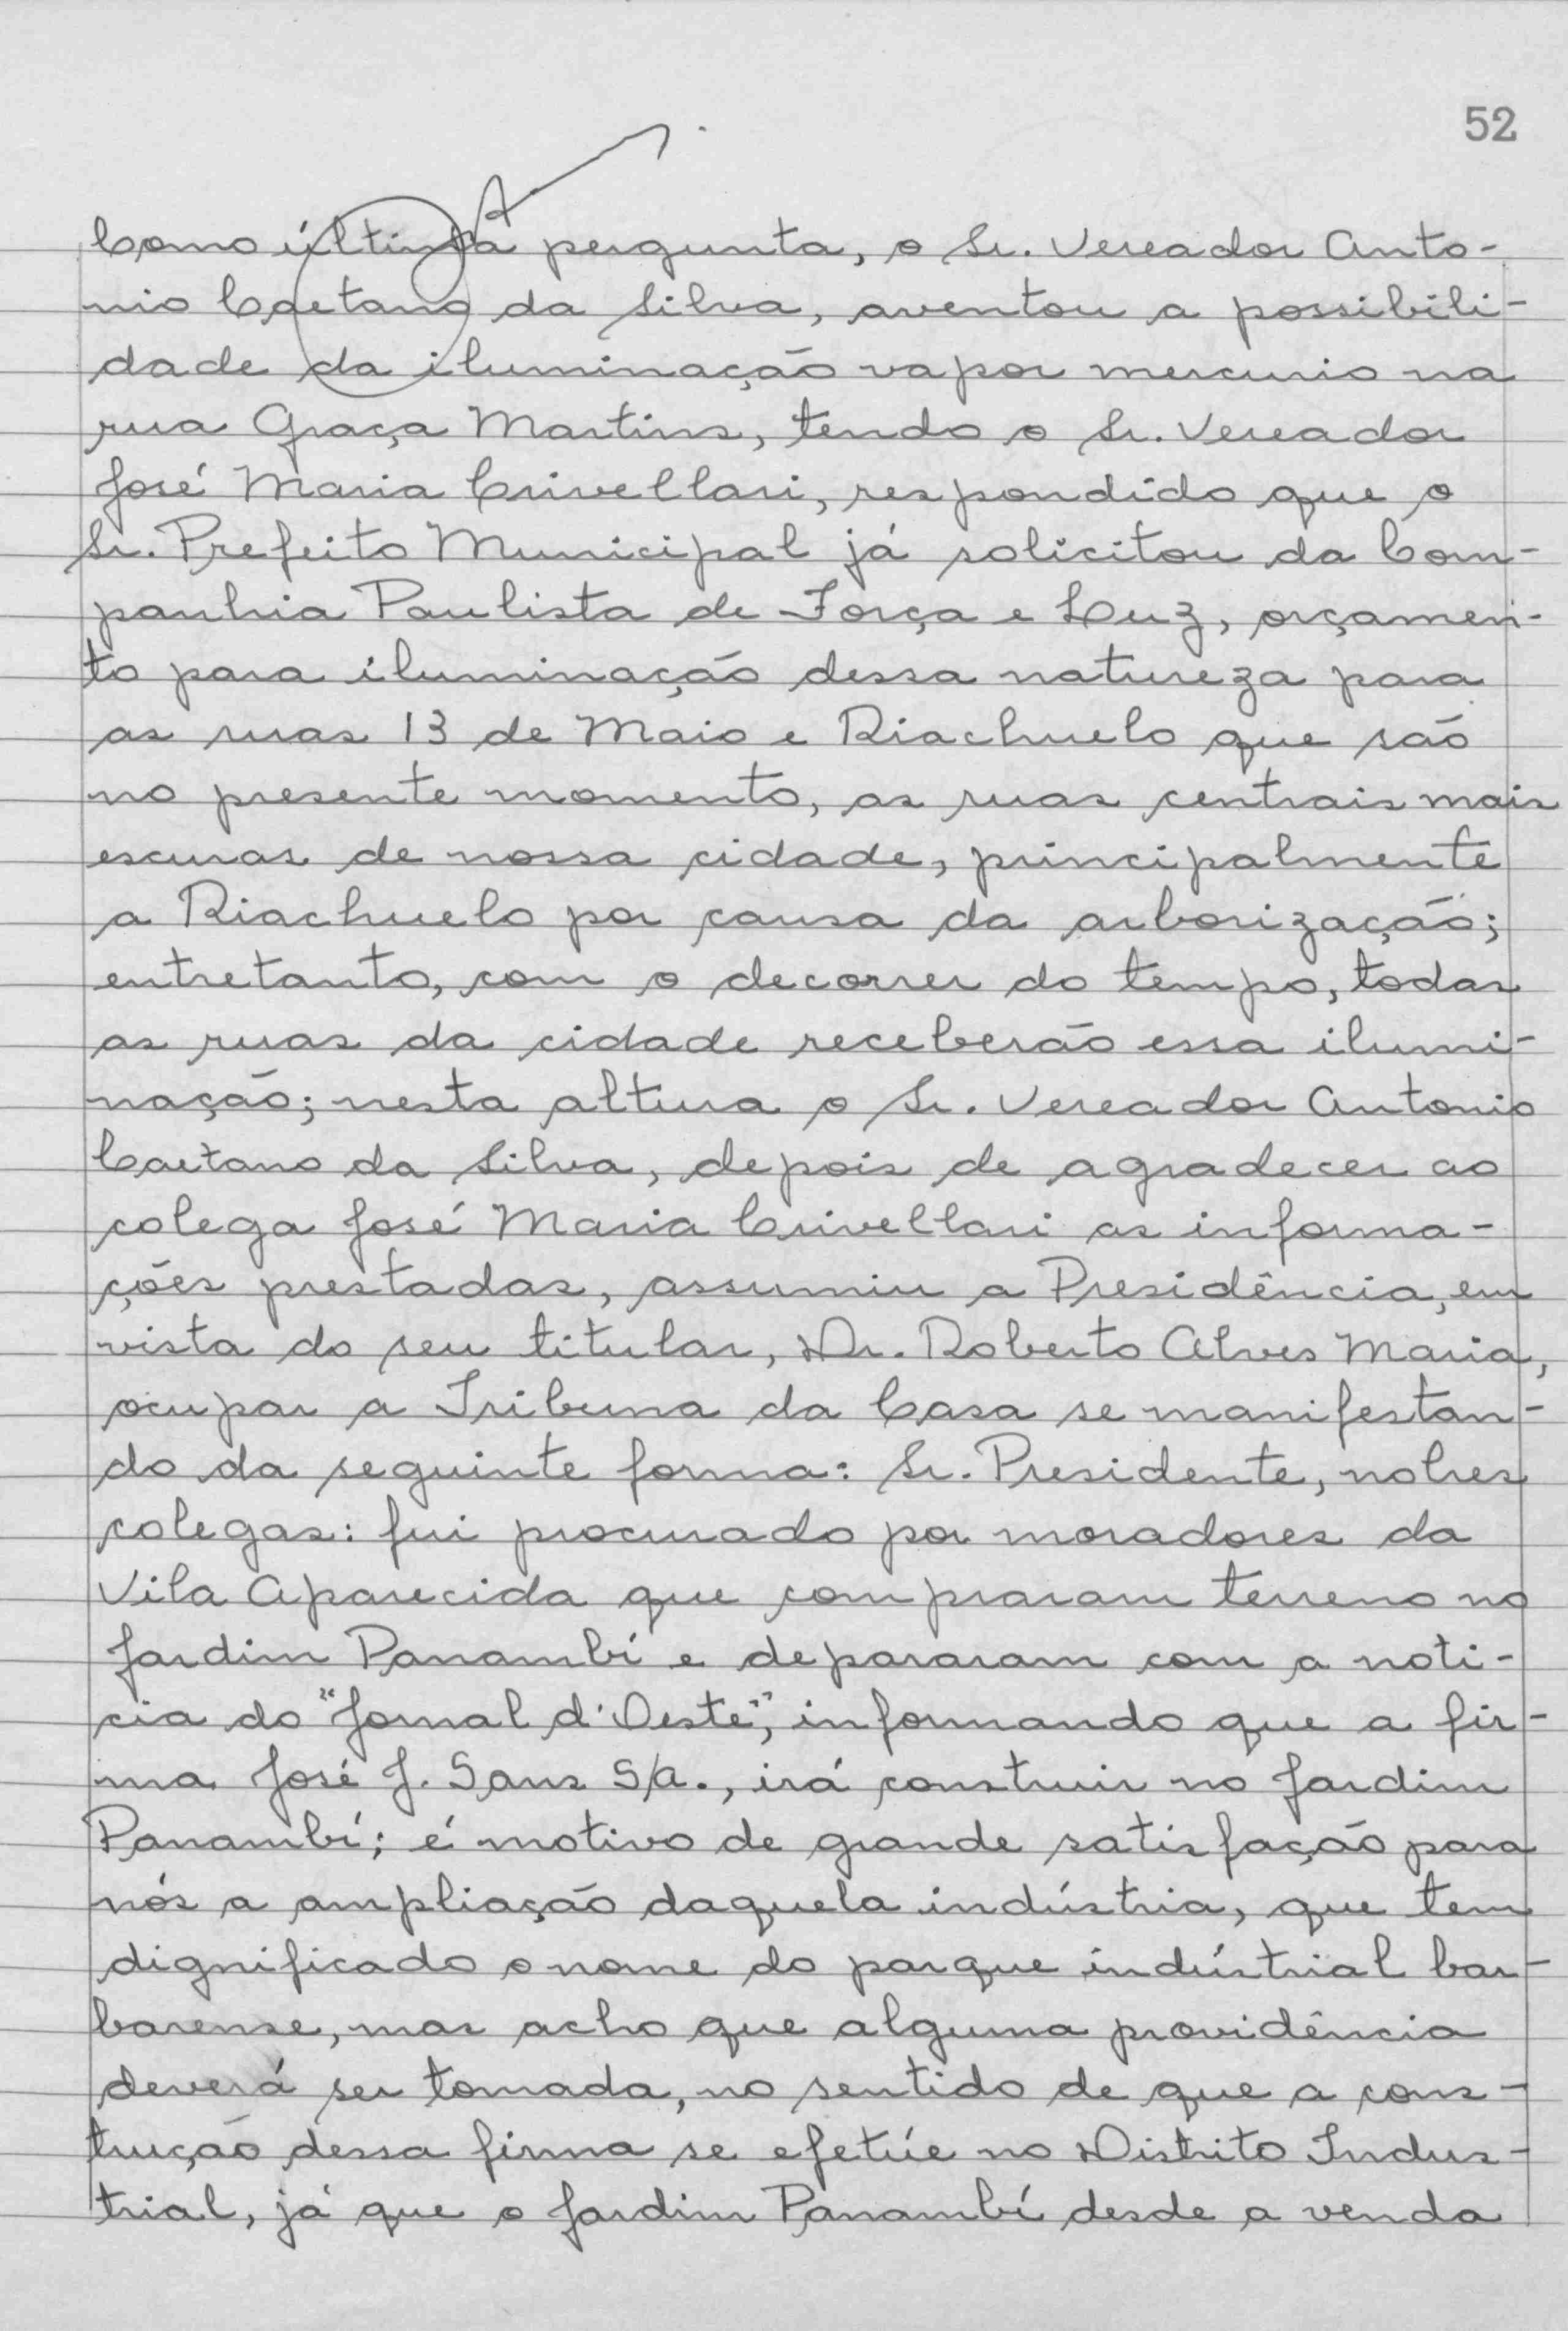 52
Como última pergunta, o Sr. Vereador Anto-
nio Caetano da Silva, aventou a possibili-
dade da iluminação vapor mercurio na
rua Graça Martins, tendo o Sr. Vereador
José Maria Crivellari, respondido que o
Sr. Prefeito Municipal já solicitou da Com-
panhia Paulista de Força e Luz, orçamen-
to para iluminação dessa natureza para
as ruas 13 de Maio e Riachuelo que são
no presente momento, as ruas centrais mais
escuras de nossa cidade, principalmente
a Riachuelo por causa da arborização;
entretanto, com o decorrer do tempo, todas
as ruas da cidade receberão essa ilumi-
nação; nesta altura o Sr. Vereador Antonio
Caetano da Silva, depois de agradecer ao
colega José Maria Crivellari as informa-
ções prestadas, assumiu a Presidência, em
vista do seu titular, Dr. Roberto Alves Maria,
ocupar a Tribuna da Casa se manifestan-
do da seguinte forma: Sr. Presidente, nobres
colegas: fui procurado por moradores da
Vila Aparecida que compraram terreno no
Jardim Panambí e depararam com a noti-
cia do "Jornal d'Oeste", informando que a fir-
ma José J. Sans S/A., irá construir no Jardim
Panambí; é motivo de grande satisfação para
nós a ampliação daquela indústria, que tem
dignificado o nome do parque indústrial bar-
barense, mas acho que alguma providência
deverá ser tomada, no sentido de que a cons-
trução dessa firma se efetúe no Distrito Indus-
trial, já que o Jardim Panambí desde a venda